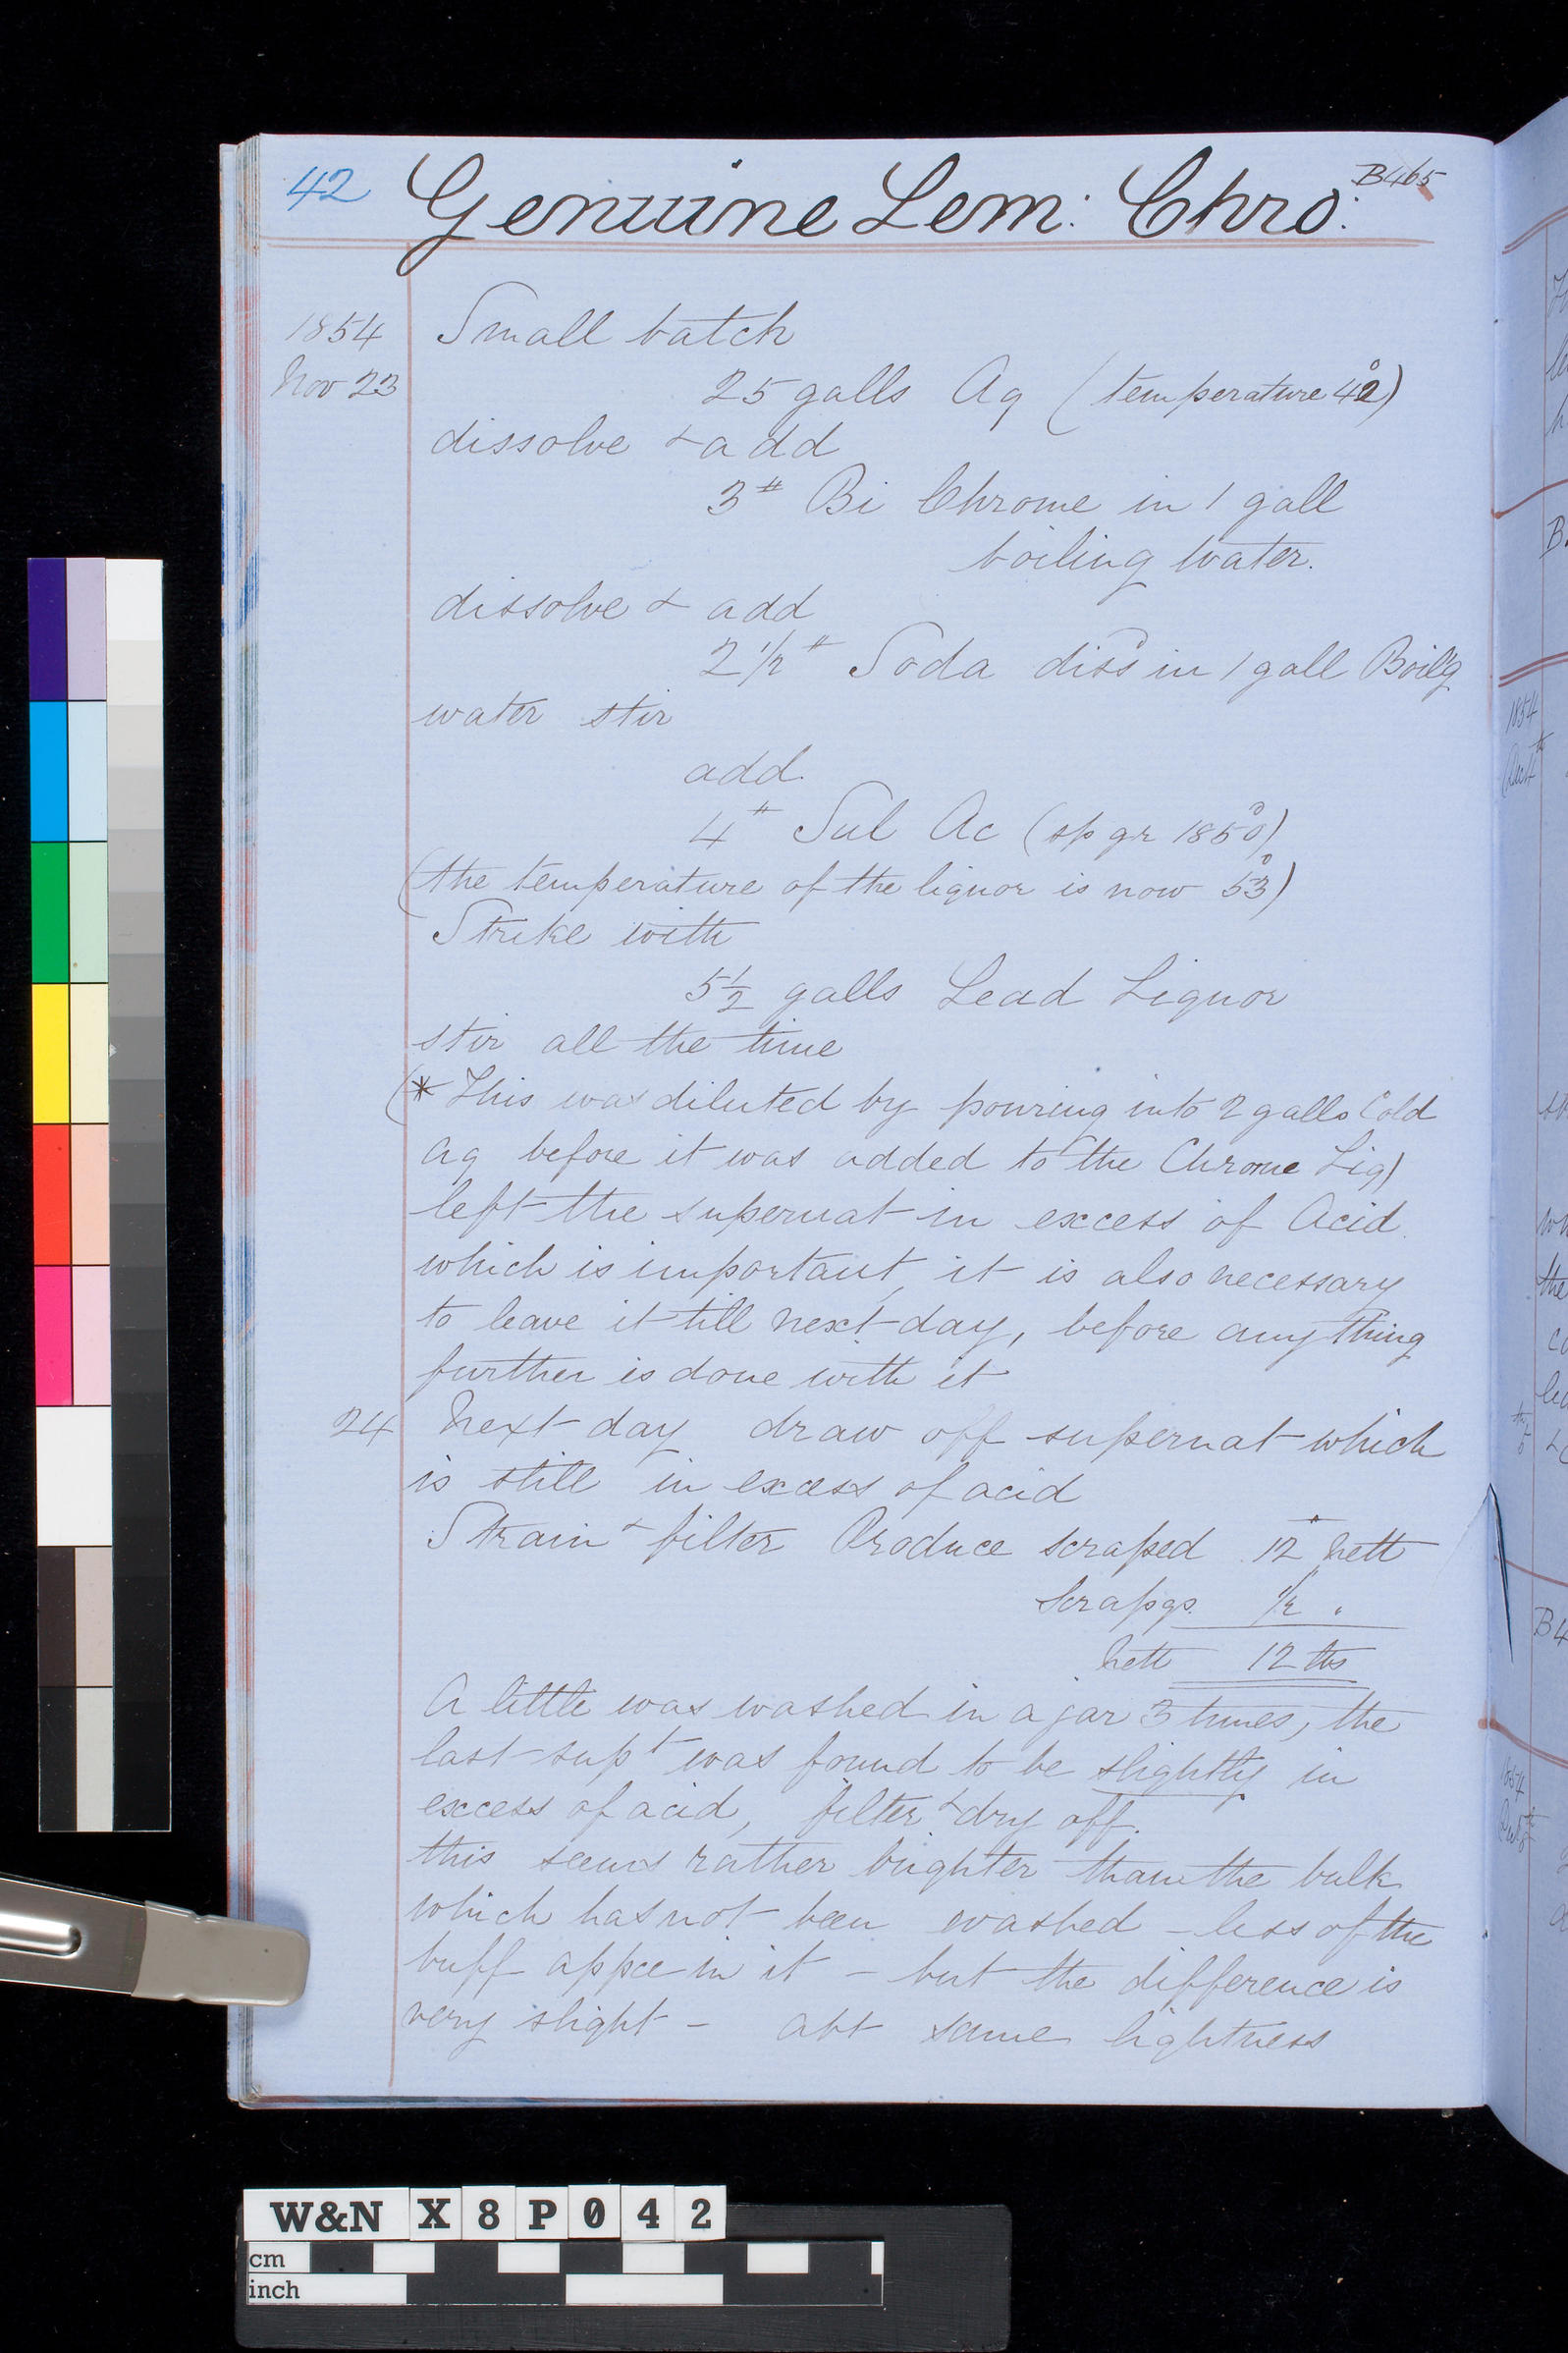 42 Genuine Lem: Chro: B465
1854 Small batch
Nov 23 25 galls Aq (temperature 42°)
dissolve & add
3# Bi Chrome in 1 gall
boiling water.
dissolve & add
2 1/2# Soda diss in 1 gall Boilg
water stir
add.
4# Sul Ac (sp gr 1850°)
(the temperature of the liquor is now 53°)
Strike with
5½ galls Lead Liquor
stir all the time
(* This was diluted by pouring into 2 galls Cold
aq before it was added to the Chrome Liq)
left the supernat in excess of Acid.
which is important, it is also necessary
to leave it till next day, before anything
further is done with it
24 Next day draw off supernat which
is still in excess of acid
Strain & filter Produce scraped 12 nett
Scrapgs. 1/2 "
nett 12 lbs
A little was washed in a jar 3 times, the
last supt was found to be slightly in
excess of acid, filter & dry off.
this seems rather brighter than the bulk
which has not been washed - less of the
buff appce in it - but the difference is
very slight - abt same lightness
W&N X8P042
cm
inch